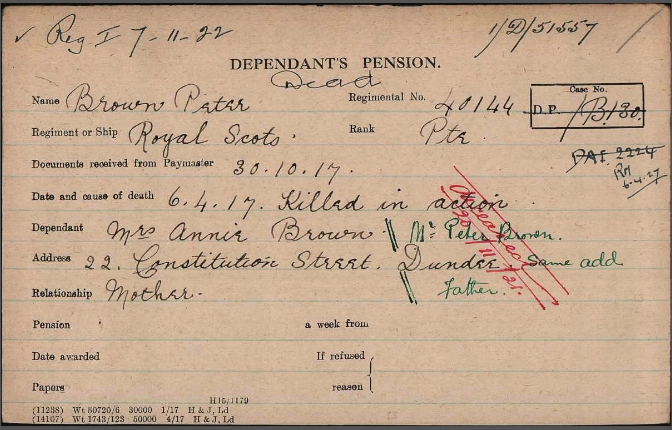 ✓ Reg I 7-11-22 1/D/51557 /
DEPENDANT'S PENSION.
Dead
Name Brown Peter Regimental No. 40144
Case No.
D.P. /B130.
Regiment or Ship Royal Scots. Rank Pte.
PAI 2224
RH
6.4.27
Documents received from Paymaster 30.10.17.
Date and cause of death 6.4.17. Killed in action.
Dependant Mrs Annie Brown. Mr Peter Brown.
Address 22. Constitution Street. Dundee Same add
Relationship Mother. Father.
30/11/21.
Pension a week from
Date awarded If refused
Papers reason
H15/1179
(11238) Wt 50720/6 30000 1/17 H & J, Ld
(14107) Wt 1743/123 50000 4/17 H & J, Ld